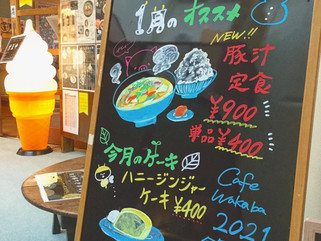 1月の オススメ
NEW!!
豚汁
定食
¥900
単品¥400
今月のケーキ
ハニージンジャー
ケーキ ¥400
Cafe
Wakaba
2021